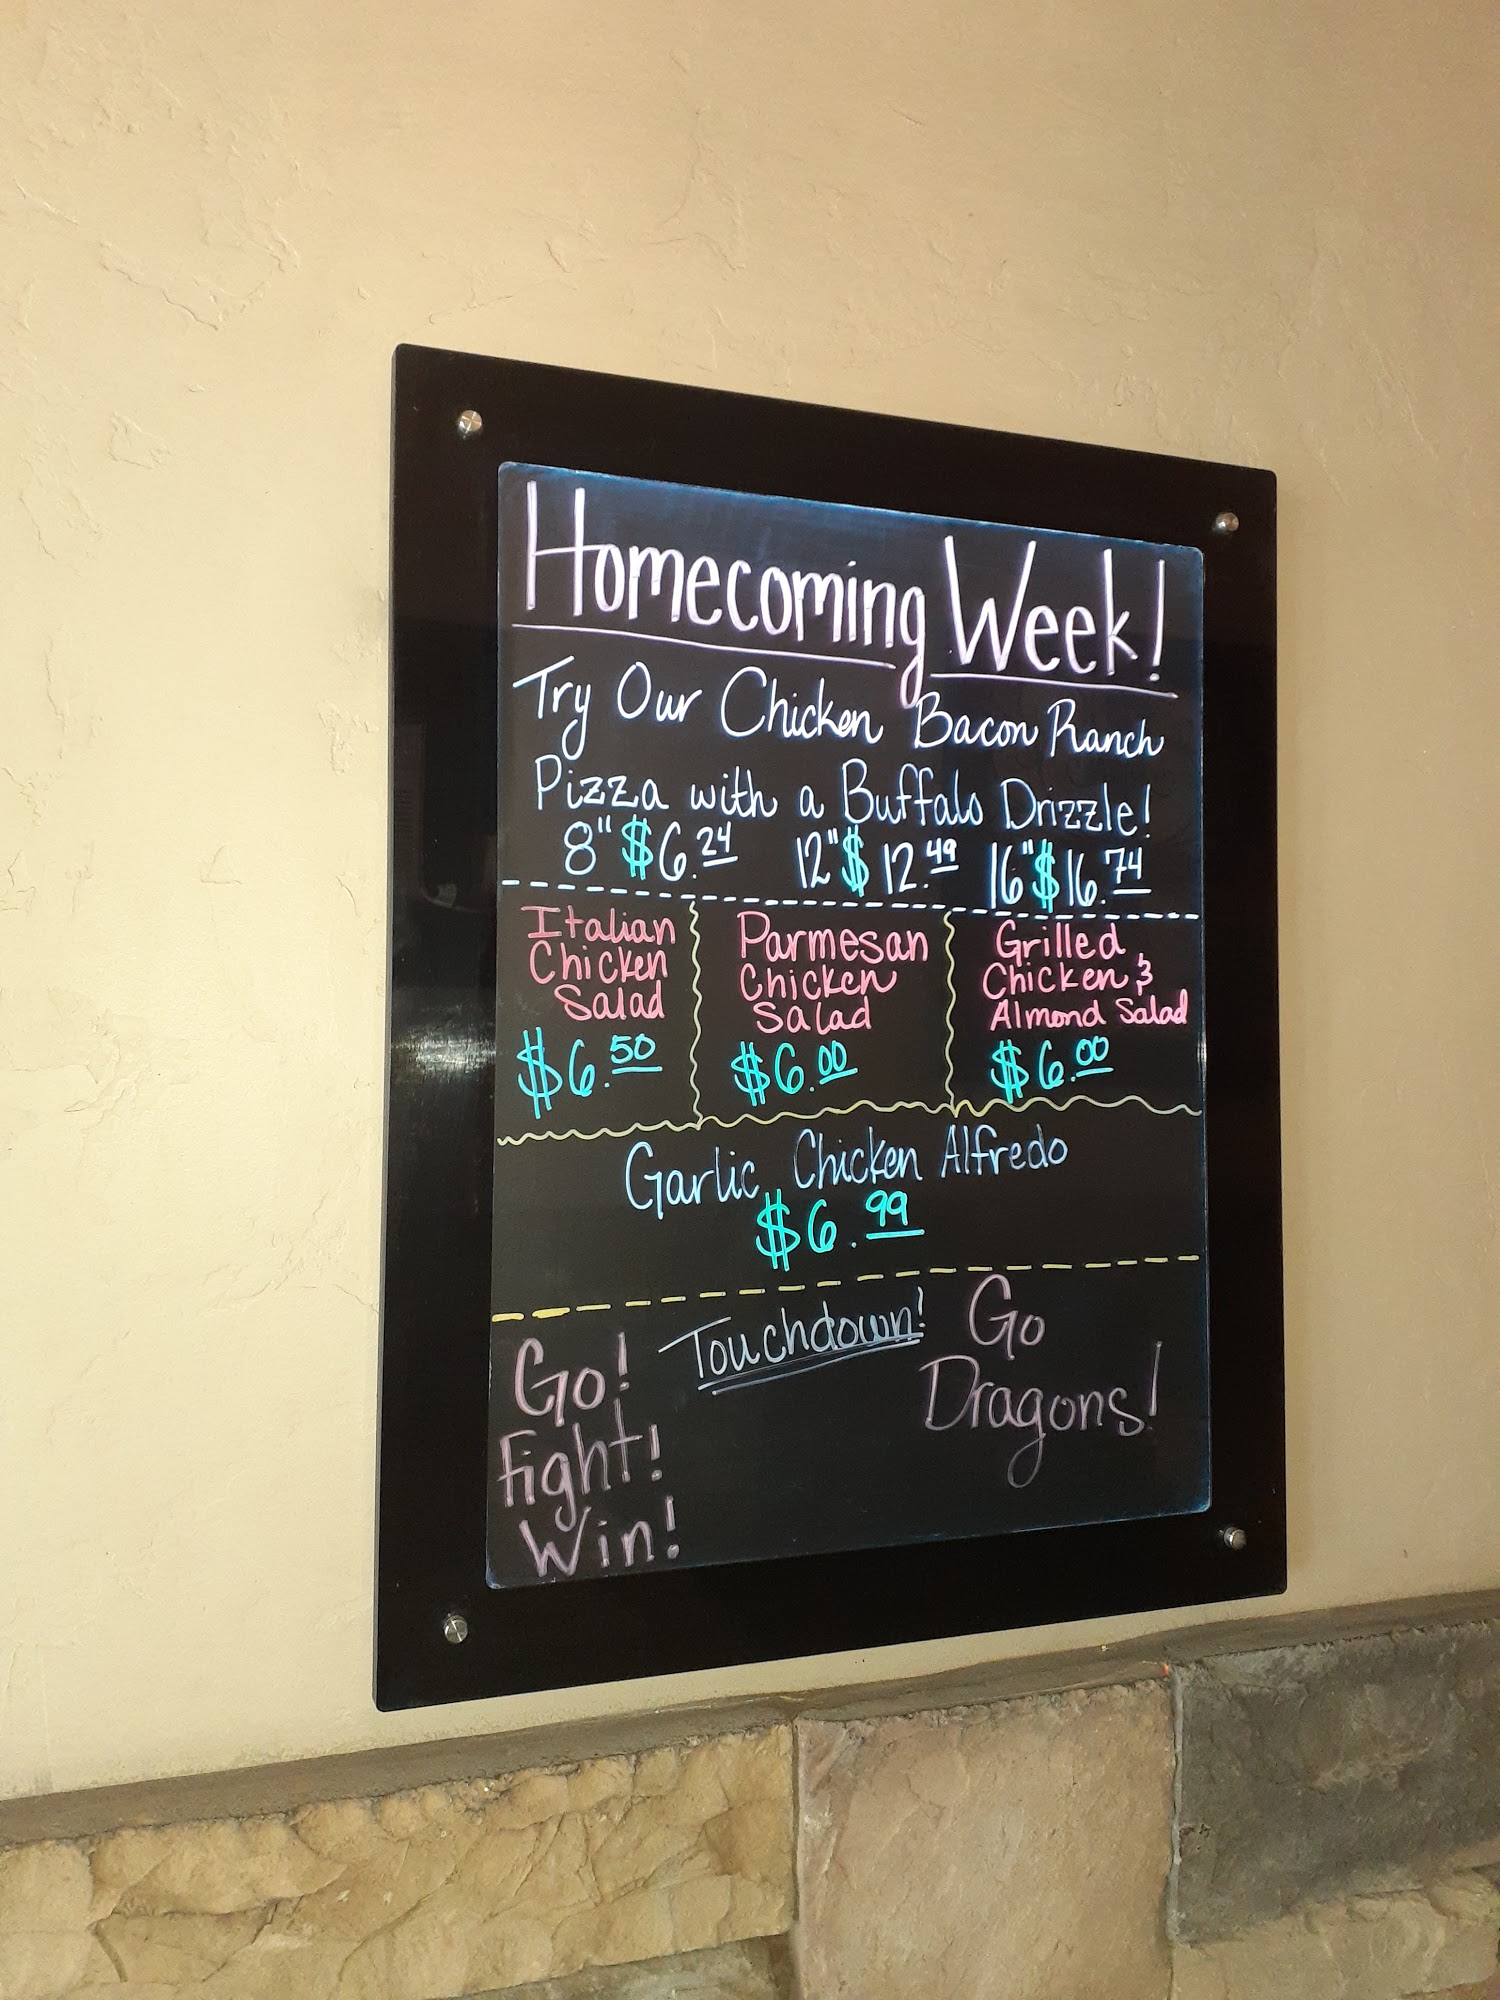 Homecoming Week!
Try Our Chicken Bacon Ranch
Pizza with a Buffalo Drizzle!
8" $6.24 12" $12.49 16" $16.74
Italian
Chicken
Salad
$6.50
Parmesan
Chicken
Salad
$6.00
Grilled
Chicken &
Almond Salad
$6.00
Garlic Chicken Alfredo
$6.99
Go!
Fight!
Win!
Touchdown!
Go
Dragons!